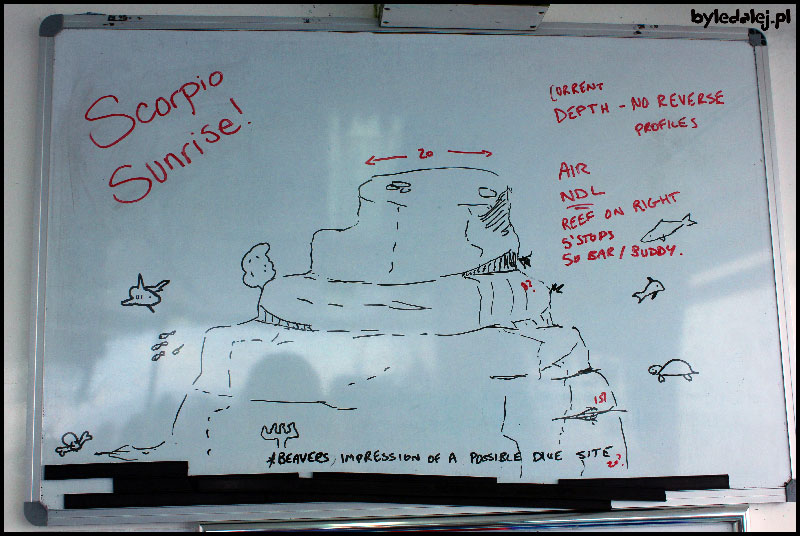 byledalej.pl
Scorpio
Sunrise!
CURRENT
DEPTH - NO REVERSE
PROFILES
20
AIR
NDL
REEF ON RIGHT
5' STOPS
50 BAR / BUDDY.
*BEAVERS IMPRESSION OF A POSSIBLE DIVE SITE